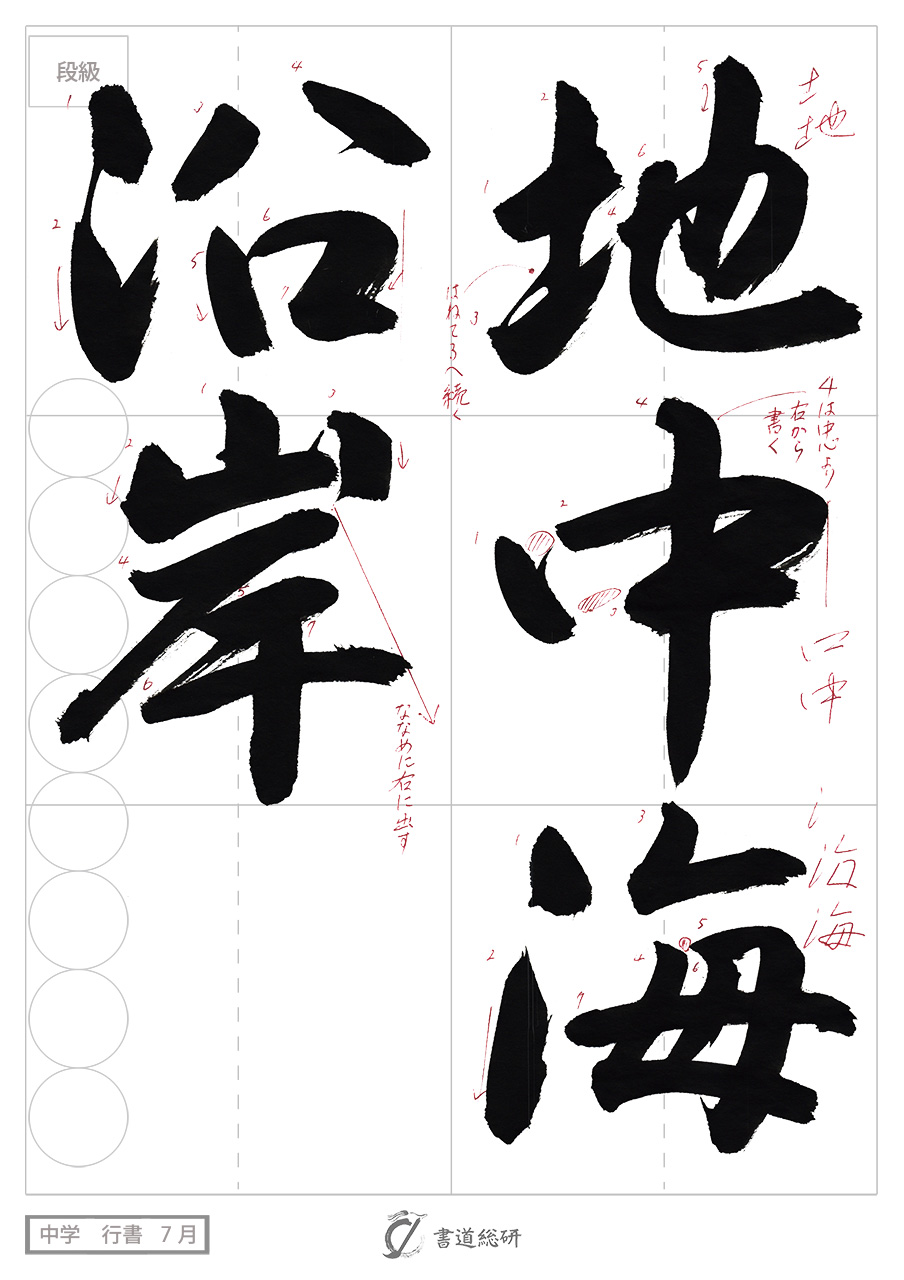 地中海
沿岸
段級
土
地
はねて3へ続く
4は中心より
右から
書く
口
中
氵
沿
海
ななめに右に出す
中学 行書 7月
書道総研